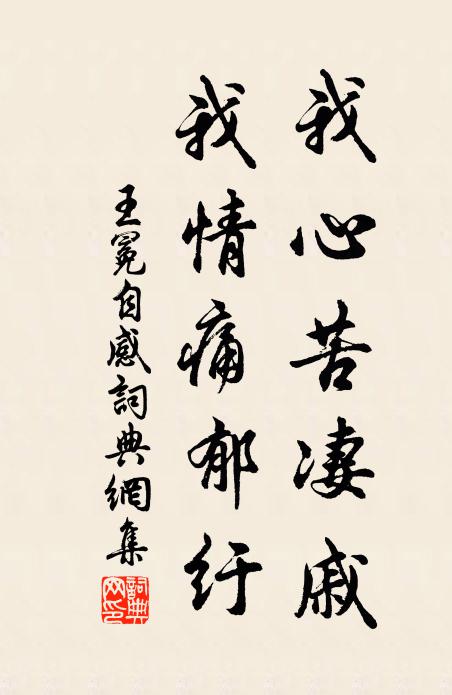 我心苦凄戚
我情痛郁纡
王冕自感詞典網集
詞典網印